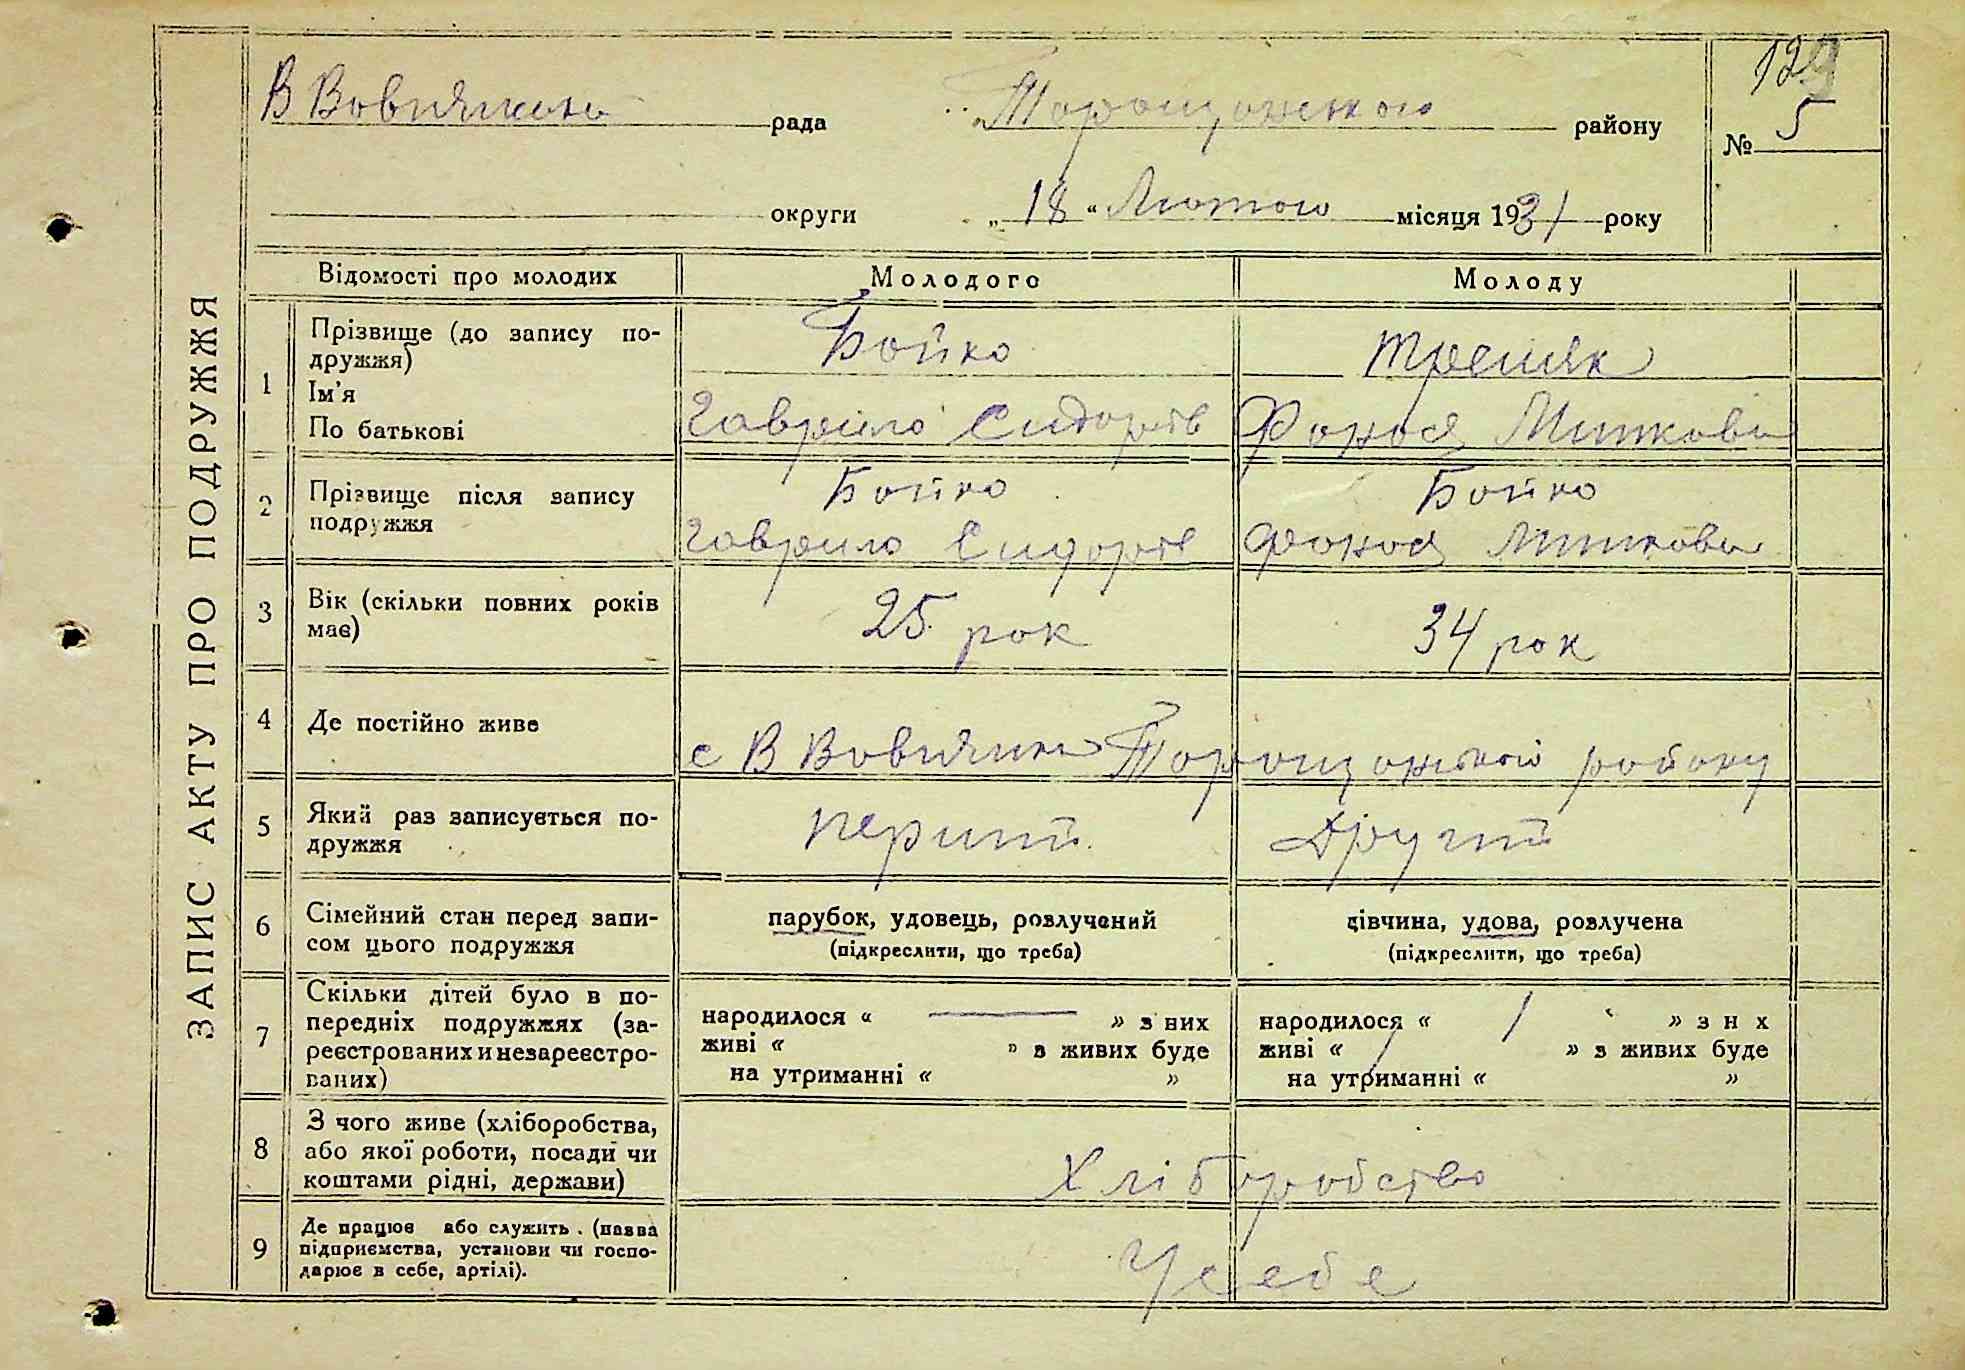 129
В Вовнянська рада Таращанського району
№ 5
округи „ 18 “ Лютого місяця 1931 року
ЗАПИС АКТУ ПРО ПОДРУЖЖЯ
Відомості про молодих Молодого Молоду
1 Прізвище (до запису по-
дружжя) Бойко
Ім'я
По батькові Гаврило Сидорів
2 Прізвище після запису Бойко Бойко
подружжя Гаврило Сидорів
3 Вік (скільки повних років 25 рок 34 рок
має)
4 Де постійно живе с В Вовнянка Таращанського району
5 Який раз записується по- перший Другий
дружжя
6 Сімейний стан перед запи- парубок, удовець, розлучений дівчина, удова, розлучена
сом цього подружжя (підкреслити, що треба) (підкреслити, що треба)
7 Скільки дітей було в по-
передніх подружжях (за- народилося “ — ” з них народилося “ 1 ” з н х
реєстрованих и незареєстро- живі “ ” в живих буде живі “ 1 ” з живих буде
ваних) на утриманні “ ” на утриманні “ ”
8 З чого живе (хліборобства,
або якої роботи, посади чи
коштами рідні, держави) Хліборобство
9 Де працює або служить. (назва
підприємства, установи чи госпо- У себе
дарює в себе, артілі).